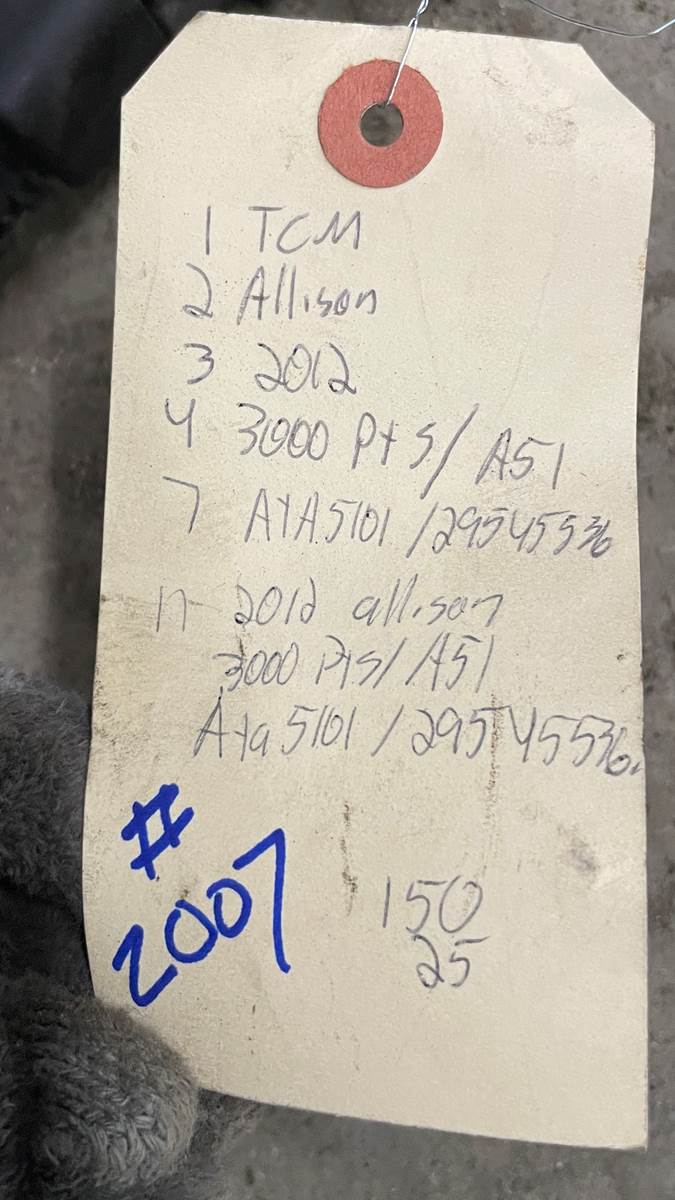 1 TCM
2 Allison
3 2012
4 3000 Pts/ A51
7 AYA5101 /29545536
17 2012 allison
3000 Pts/ A51
Aya5101 / 29545536
#
2007
150
25